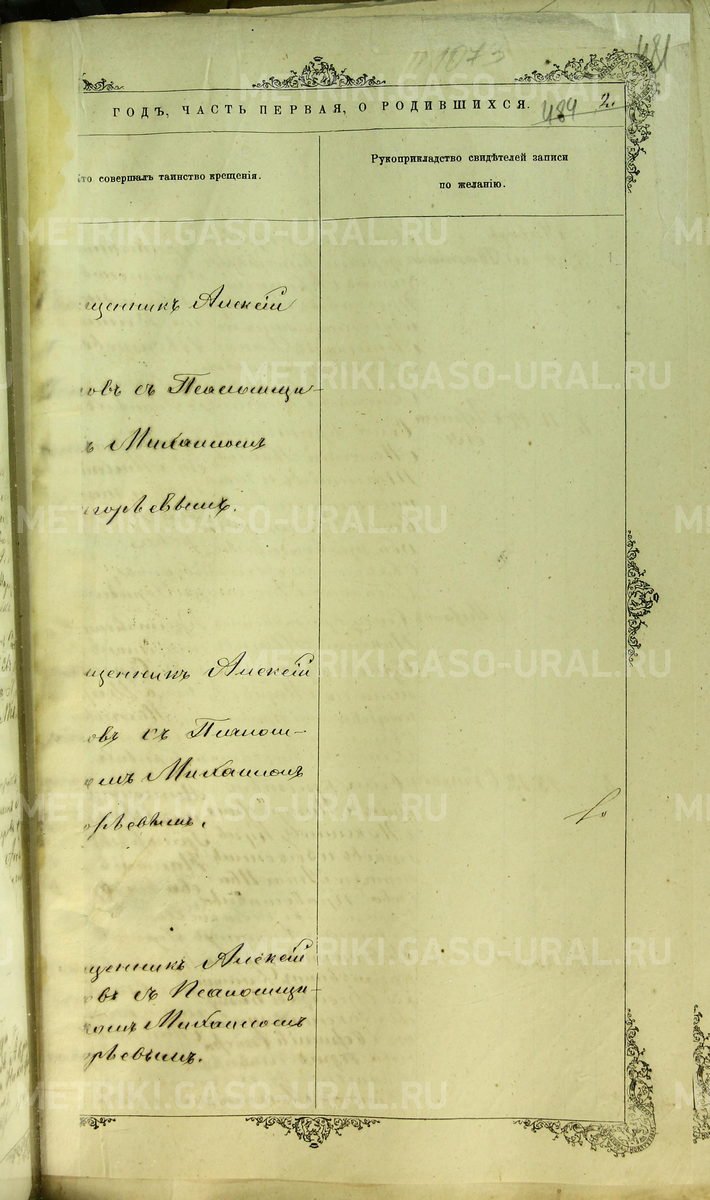 481
П1073
ГОДЪ, ЧАСТЬ ПЕРВАЯ, О РОДИВШИХСЯ.
484
2.
то совершалъ таинство крещенія.
Рукоприкладство свидѣтелей записи
по желанію.
METRIKI.GASO-URAL.RU
щенникъ Алексій
METRIKI.GASO-URAL.RU
овъ съ Псаломщи-
ъ Михаиломъ
METRIKI.GASO-URAL.RU
горьевымъ.
METRIKI.GASO-URAL.RU
щенникъ Алексій
овъ съ
омъ Михаиломъ
METRIKI.GASO-URAL.RU
орьевымъ.
METRIKI.GASO-URAL.RU
щенникъ Алексій
овъ съ Псаломщи-
комъ Михаиломъ
орьевымъ.
METRIKI.GASO-URAL.RU